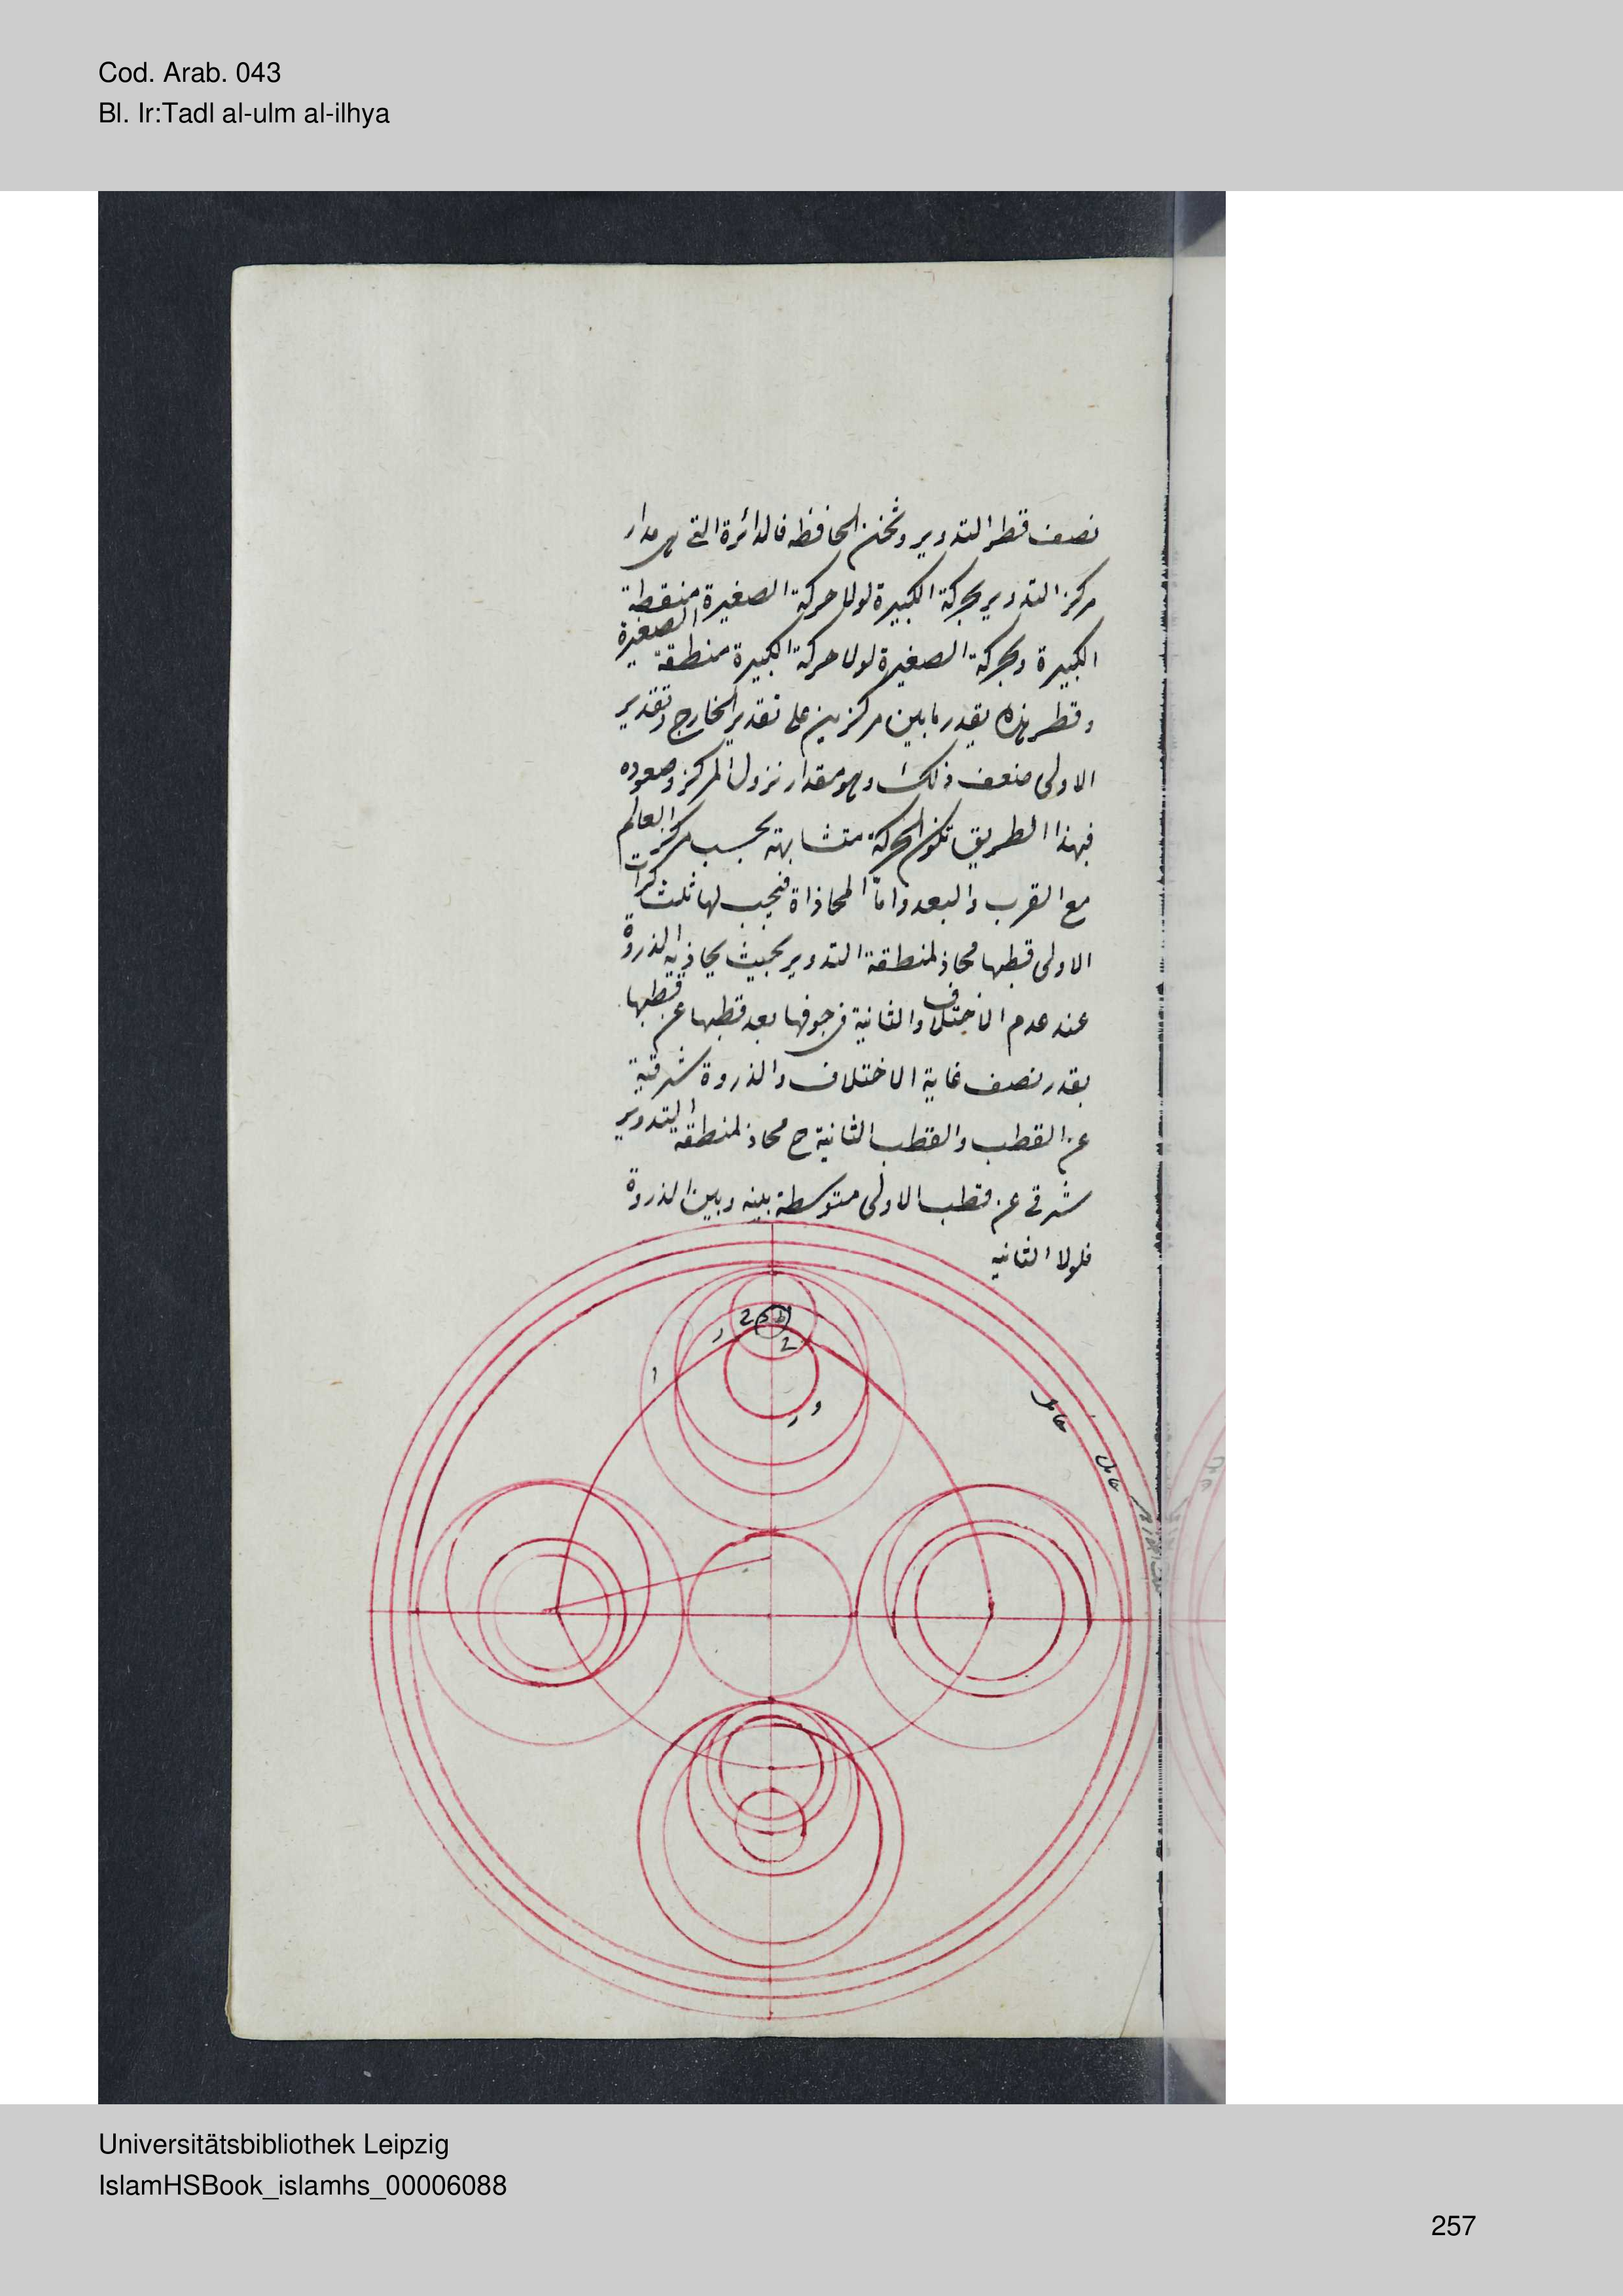 Cod. Arab. 043
Bl. Ir:Tadl al-ulm al-ilhya
نصف قطر التدوير وثخن الحافظه فالدائرة التى هى مدار
مركز التدوير بحركة الكبيرة لولا حركة الصغيرة منقطة
الكبيرة وبحركة الصغيرة لولا حركة الكبيرة منطقة الصغيرة
وقطر هذه بقدر ما بين مركزين على تقدير الخارج وتقدير
الاولى ضعف ذلك وهو مقدار نزول المركز وصعوده
فبهذا الطريق تكون الحركة متشابهة بحسب مركز العالم
مع القرب والبعد واما المحاذاة فيجب لها ثلث كرات
الاولى قطبها محاذ لمنطقة التدوير بحيث يحاذيه الذروة
عند عدم الاختلاف والثانية فى جوفها بعد قطبها عن قطبها
بقدر نصف غاية الاختلاف والذروة شرقية
عن القطب والقطب الثانية ح محاذ لمنطقة التدوير
شرقى عن قطب الاولى متوسطة بينه وبين الذروة
فلولا الثانيه
حامل
مايل
Universitätsbibliothek Leipzig
IslamHSBook_islamhs_00006088
257